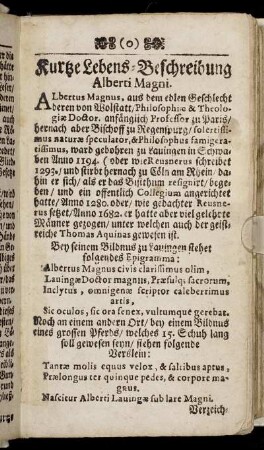 (0)
Kurtze Lebens-Beschreibung
Alberti Magni.
ALbertus Magnus, aus dem edlen Geschlecht
deren von Bolstatt, Philosophiæ & Theolo-
giæ Doctor, anfänglich Professor zu Paris/
hernach aber Bischoff zu Regenspurg/ solertissi-
mus naturæ speculator, & Philosophus famigera-
tissimus, ward gebohren zu Lauingen in Schwa-
ben Anno 1194. (oder wie Reusnerus schreibet
1293. und stirbt hernach zu Cöln am Rhein/ da-
hin er sich/ als er das Bisthum resignirt/ bege-
ben/ und ein öffentlich Collegium angerichtet
hatte/ Anno 1280. oder/ wie gedachter Reusne-
rus setzet/ Anno 1682. er hatte aber viel gelehrte
Männer gezogen/ unter welchen auch der geist-
reiche Thomas Aquinas gewesen ist.
Bey seinem Bildnus zu Lauingen stehet
folgendes Epigramma:
Albertus Magnus civis clarissimus olim,
Lauingæ Doctor magnus, Præsulq; sacrorum,
Inclytus, omnigenæ scriptor celeberrimus
artis,
Sic oculos, sic ora senex, vultumque gerebat.
Noch an einem andern Ort/ bey einem Bildnus
eines grossen Pferds/ welches 15. Schuh lang
soll gewesen seyn/ stehen folgende
Verslein:
Tantæ molis equus velox, & saltibus aptus,
Prælongus ter quinque pedes, & corpore ma-
gnus.
Nascitur Alberti Lauingæ sub lare Magni.
Verzeich-